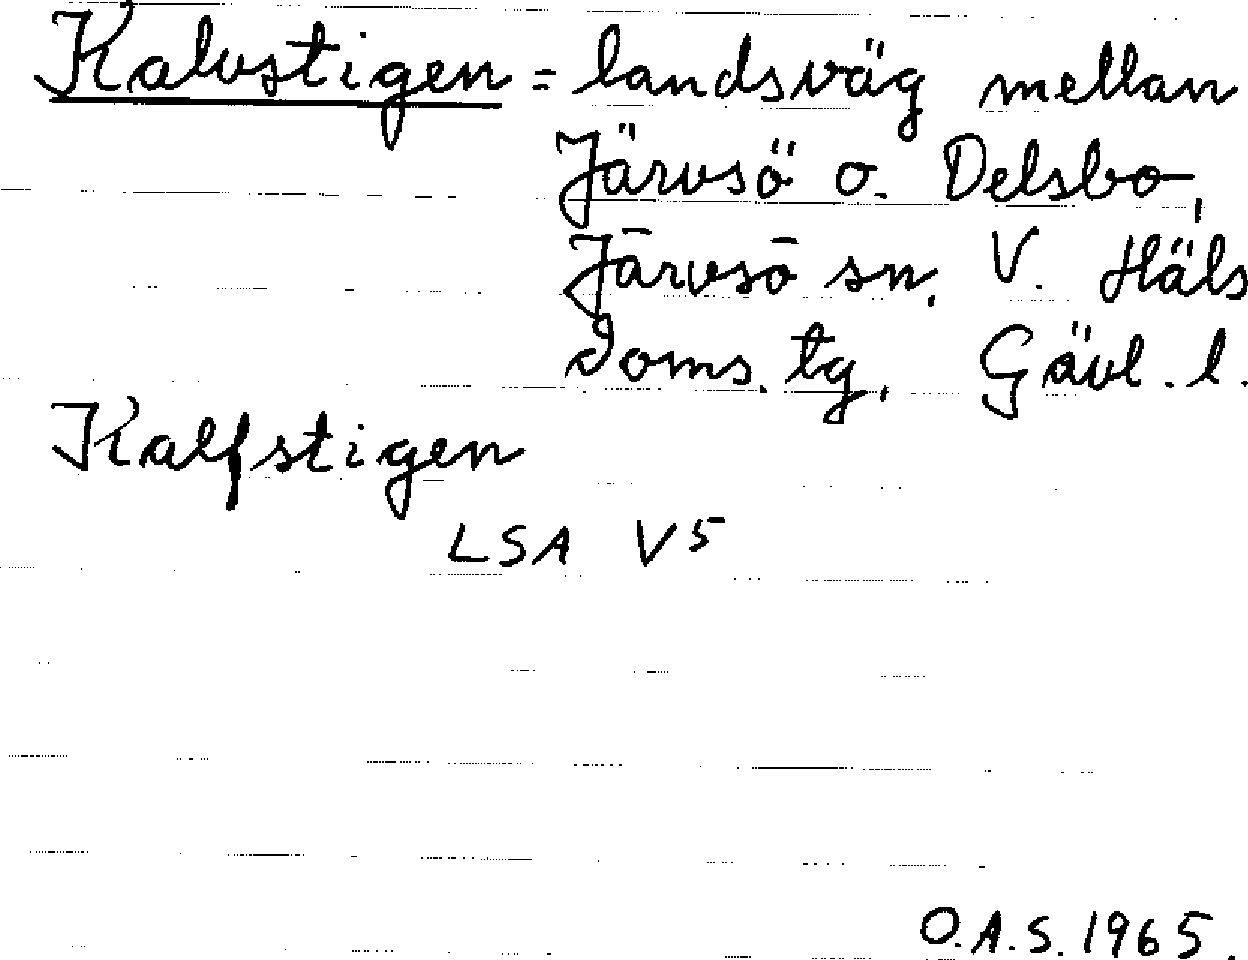 Kalvstigen = landsväg mellan
Järvsö o. Delsbo,
Järvsö sn, V. Häls
doms. tg, Gävl. l.
Kalfstigen
LSA V5
O.A.S. 1965.